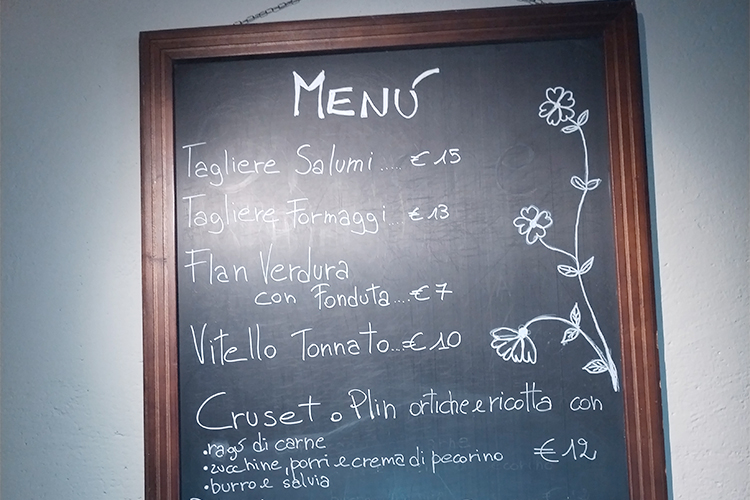 MENÚ
Tagliere Salumi..... €15
Tagliere Formaggi... €13
Flan Verdura
con Fonduta....€7
Vitello Tonnato...€10
Cruset o Plin ortiche e ricotta con
•ragú di carne
•zucchine, porri e crema di pecorino €12
•burro e salvia